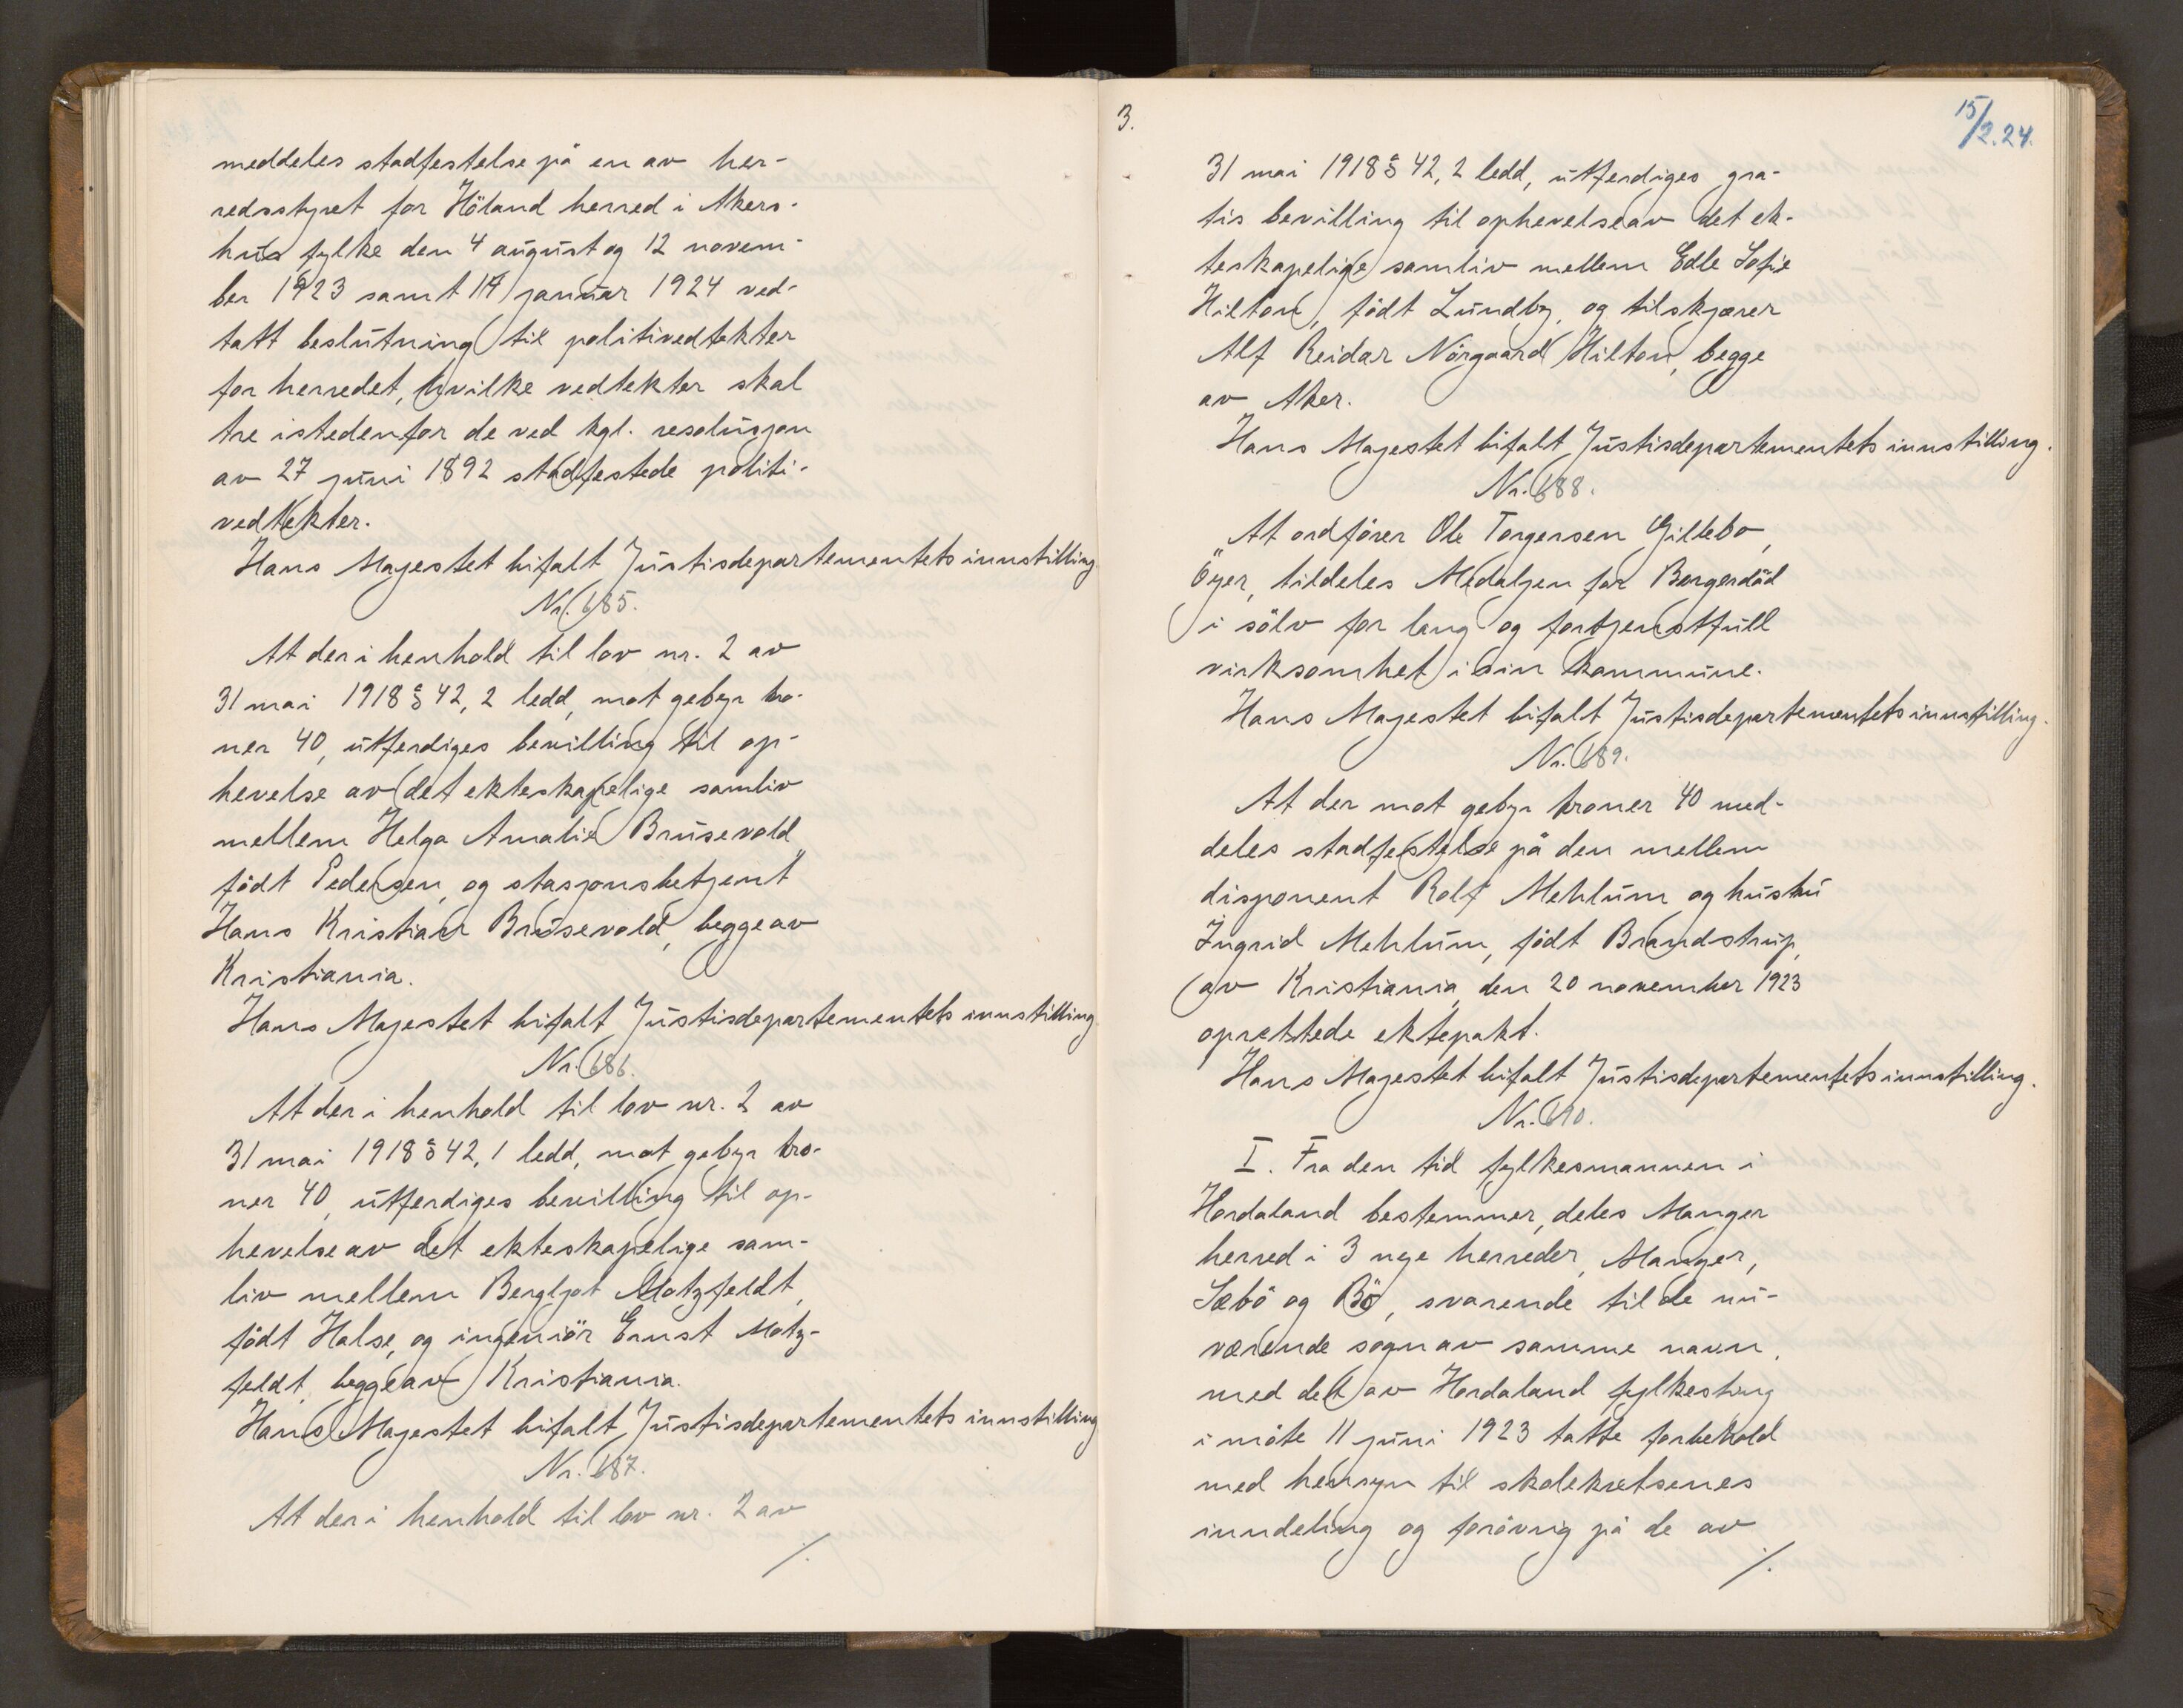 meddeles stadfestelse på en av her-
redsstyret for Höland herred i Akers-
hus fylke den 4 august og 12 novem-
ber 1923 samt 14 januar 1924 ved-
tatt beslutning til politivedtekter
for herredet, hvilke vedtekter skal
tre istedenfor de ved kgl. resolusjon
av 27 juni 1892 stadfestede politi-
vedtekter.
Hans Majestet bifalt Justisdepartementets innstilling
Nr. 685.
At der i henhold til lov nr. 2 av
31 mai 1918 § 42, 2 ledd, mot gebyr kro-
ner 40, utferdiges bevilling til op-
hevelse av det ekteskapelige samliv
mellem Helga Amalie Brusevold,
född Pedersen, og stasjonsbetjent
Hans Kristian Brusevold, begge av
Kristiania.
Hans Majestet bifalt Justisdepartementets innstilling
Nr. 686.
At der i henhold til lov nr. 2 av
31 mai 1918 § 42, 1 ledd, mot gebyr kro-
ner 40, utferdiges bevilling til op-
hevelse av det ekteskapelige sam-
liv mellem Bergljot Motzfeldt,
född Halse, og ingeniör Ernst Motz-
feldt, begge av Kristiania.
Hans Majestet bifalt Justisdepartementets innstilling
Nr. 687.
At der i henhold til lov nr. 2 av
./.
3.
15/2.24.
31 mai 1918 § 42, 2 ledd, utferdiges gra-
tis bevilling til ophevelse av det ek-
teskapelige samliv mellem Edle Sofie
Hilton, födt Lundby, og tilskjærer
Alf Reidar Nörgaard Hilton, begge
av Aker.
Hans Majestet bifalt Justisdepartementets innstilling.
Nr. 688.
At ordförer Ole Torgersen Gillebo,
Öyer, tildeles Medaljen for Borgerdåd
i sölv for lang og fortjenstfull
virksomhet i sin kommune.
Hans Majestet bifalt Justisdepartementets innstilling.
Nr. 689.
At der mot gebyr kroner 40 med-
deles stadfestelse på den mellem
disponent Rolf Mehlum og hustru
Ingrid Mehlum, födt Brandstrup,
av Kristiania, den 20 november 1923
oprettede ektepakt.
Hans Majestet bifalt Justisdepartementets innstilling.
Nr. 690.
I. Fra den tid fylkesmannen i
Hordaland bestemmer, deles Manger
herred i 3 nye herreder, Manger,
Sæbö og Bö, svarende til de nu-
værende sogn av samme navn,
med det av Hordaland fylkesting
i möte 11 juni 1923 tatte forbehold
med hensyn til skolekretsenes
inndeling og forövrig på de av
./.